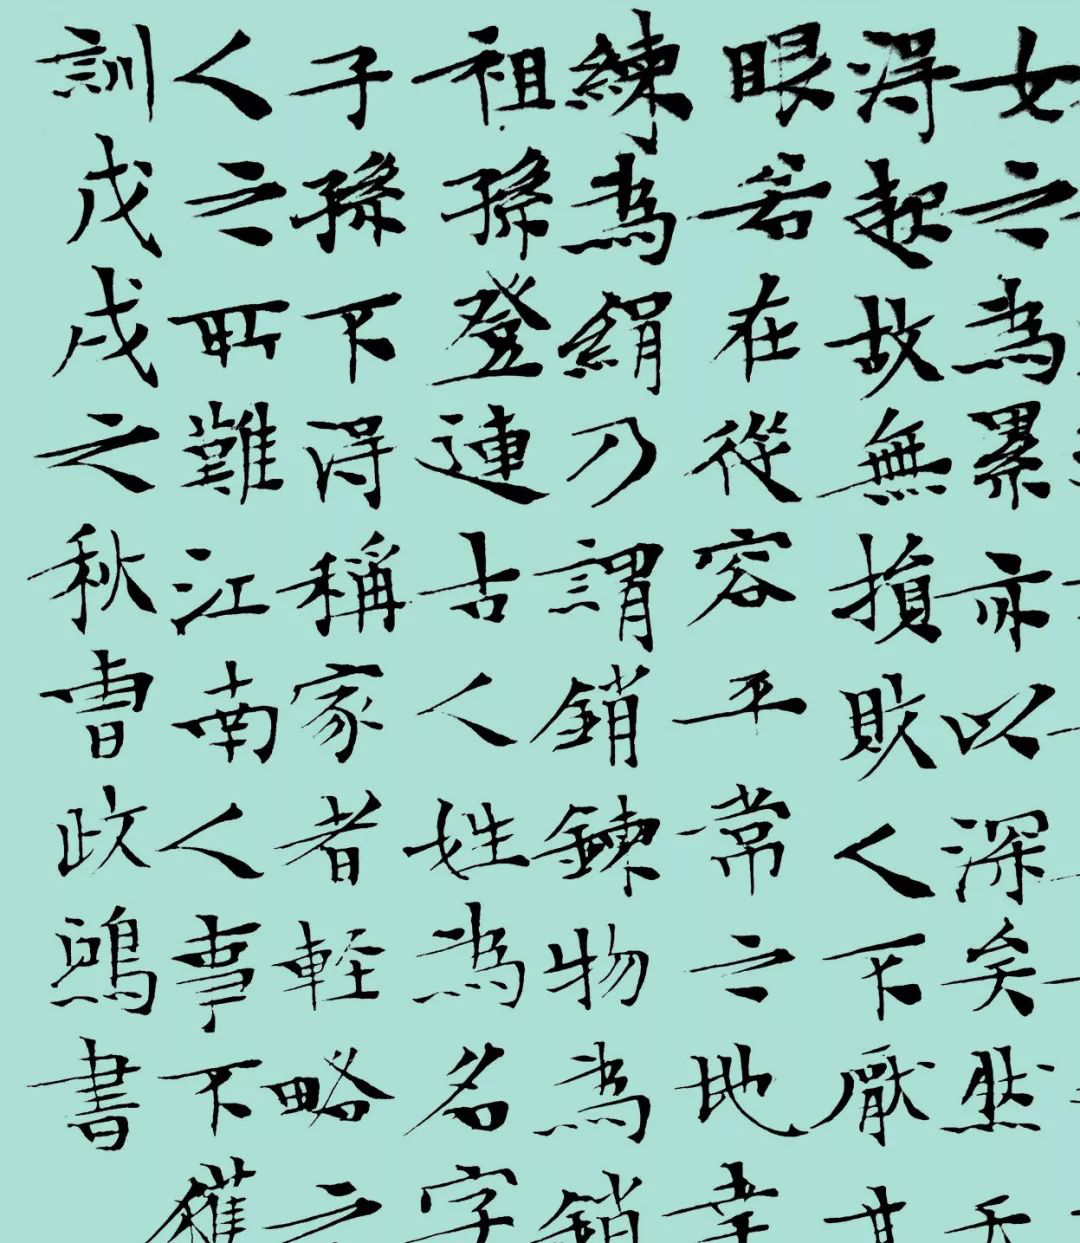 女之為累亦以深矣然天
得起故無損敗人不厭
眼若在從容平常之地幸
練為絹乃謂銷鍊物為銷
祖孫登連古人姓為名字
子孫不得稱家者輕略之
人之所難江南人事不獲
訓戊戌之秋曹政鴻書